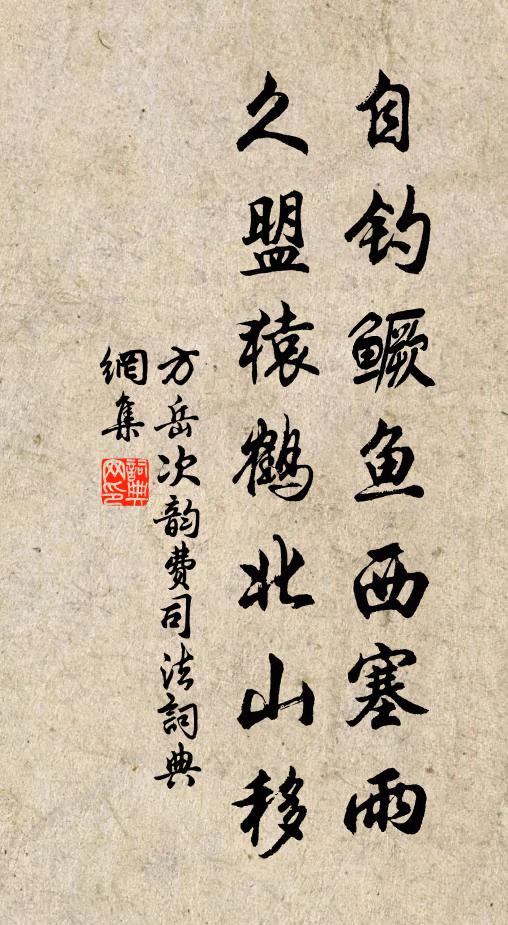 自钓鳜鱼西塞雨
久盟猿鶴北山移
方岳次韵费司法詞典
網集
詞典網印